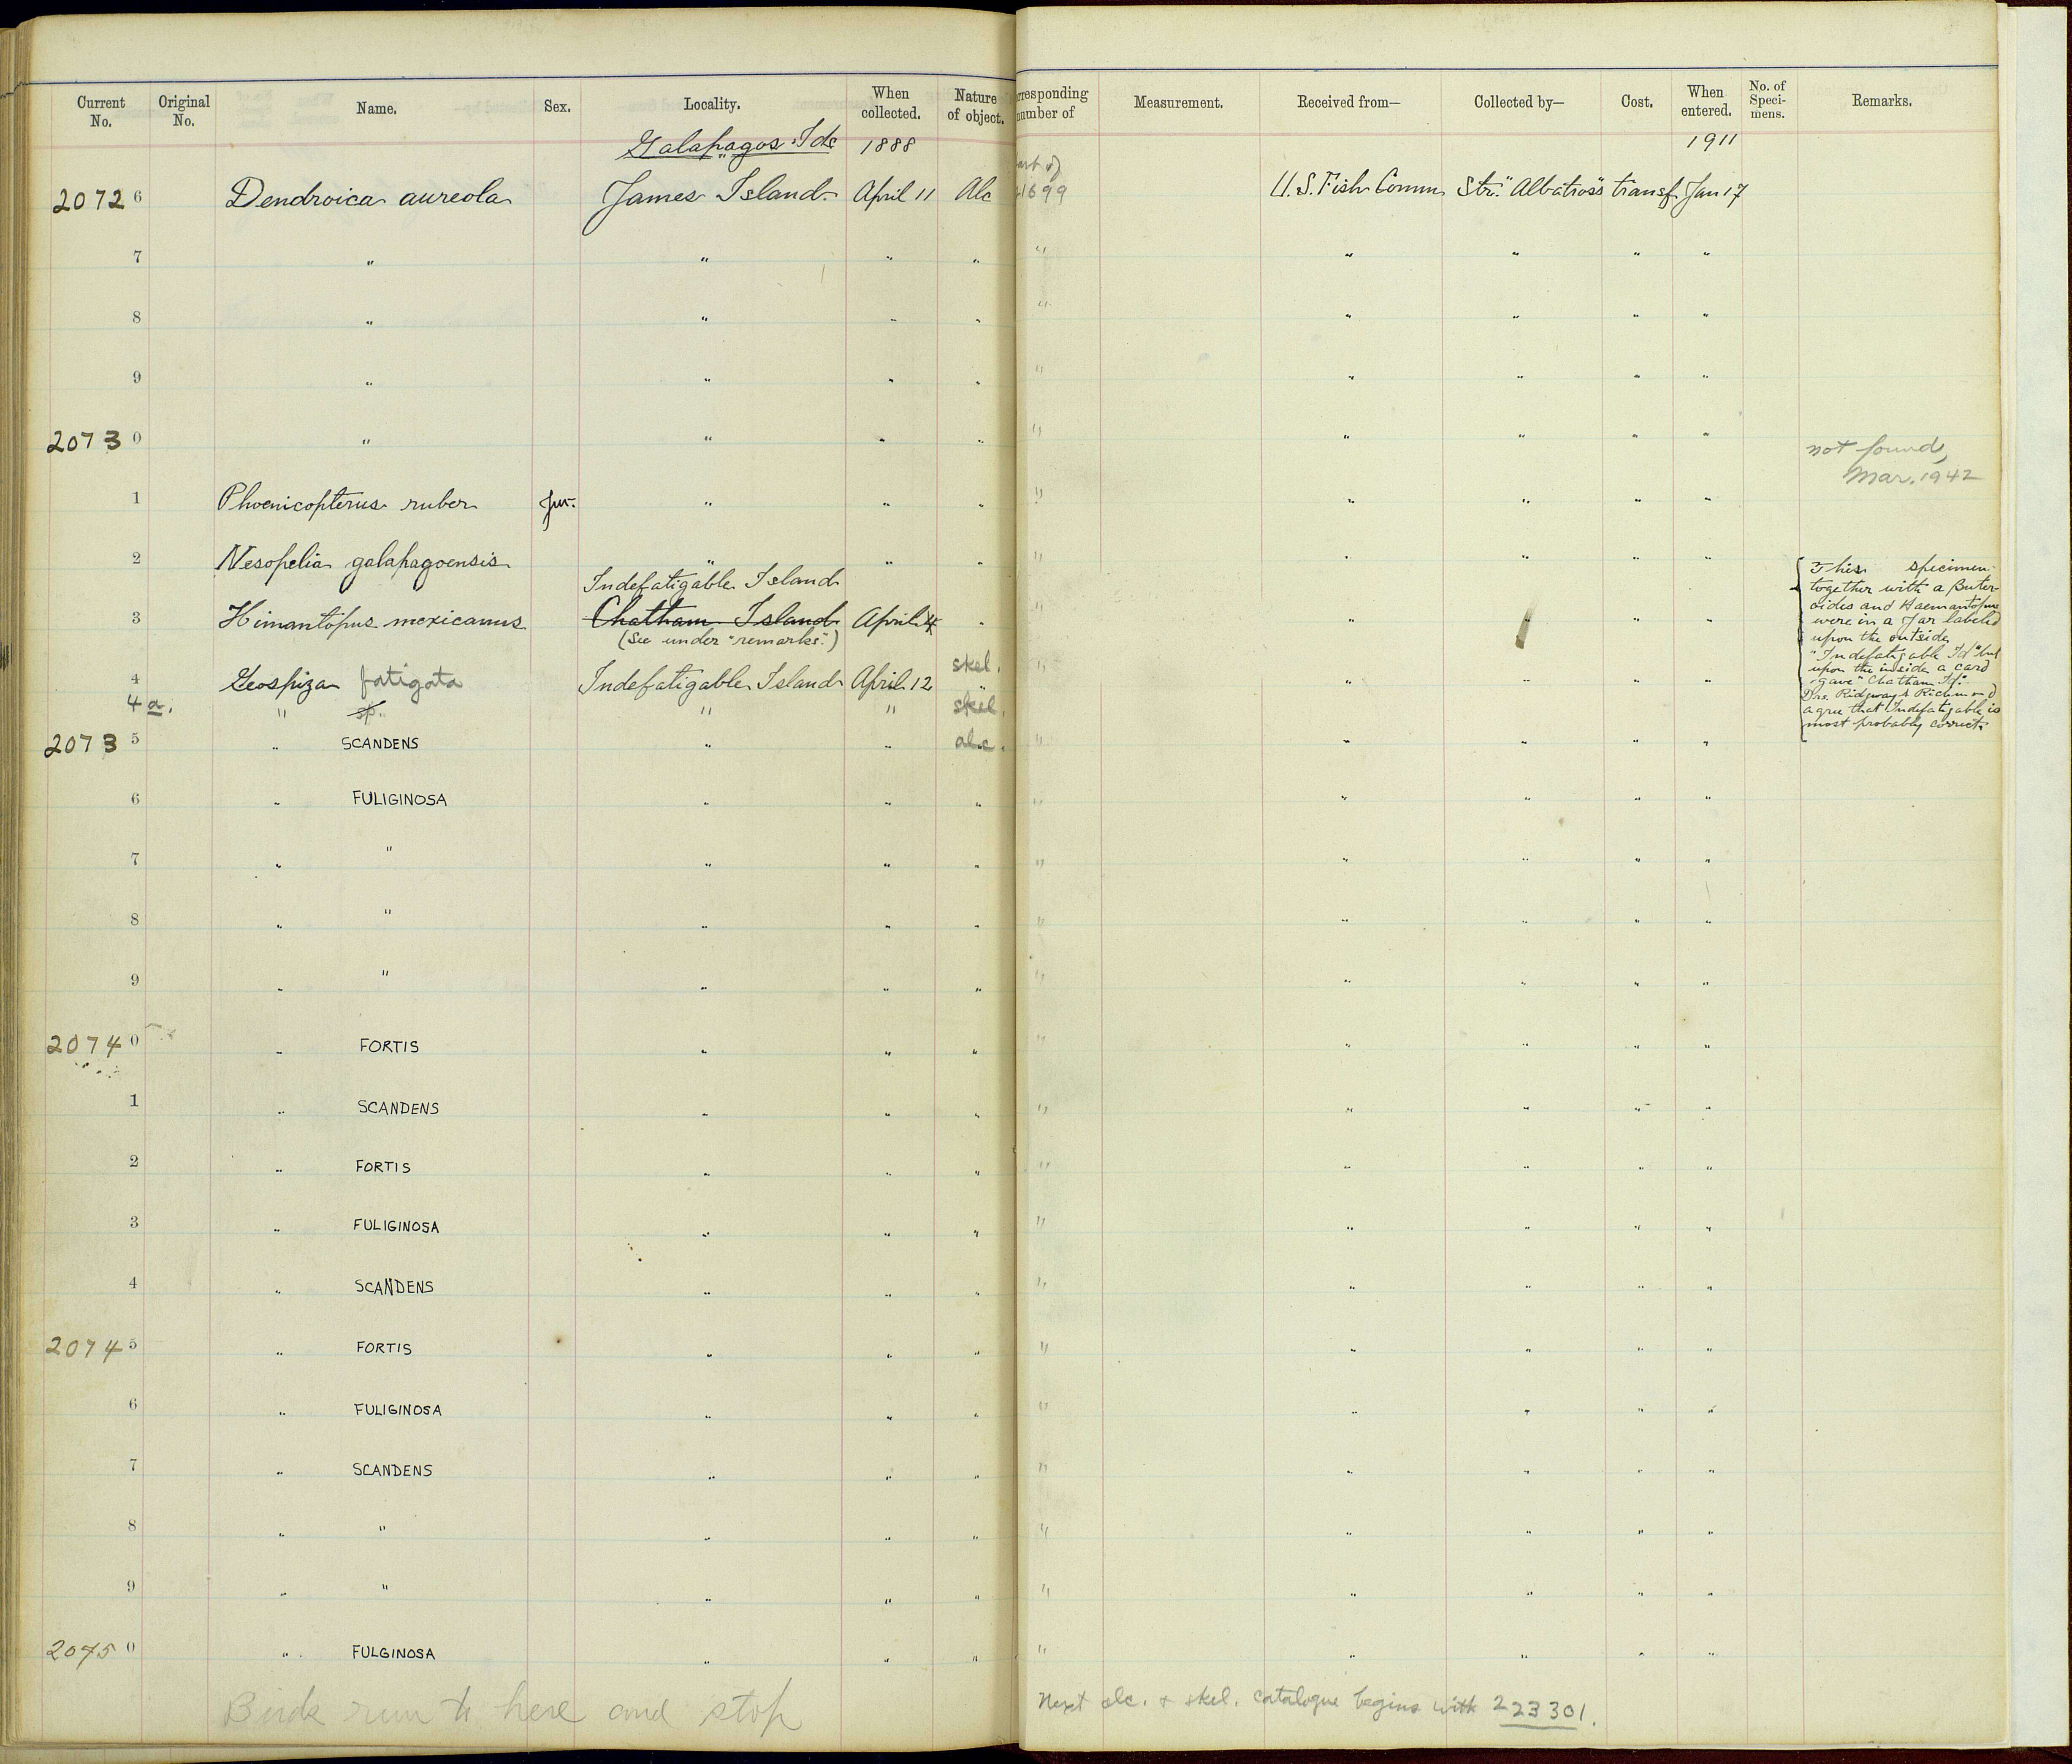 Current No. Original No. Name. Sex. Locality. When collected. Nature of object. rresponding number of Measurement. Received from— Collected by— Cost. When entered. No. of Speci-mens. Remarks.
Galapagos Ids 1888 1911
20726 Dendroica aureola James Island. April 11 Alc 1699 U.S. Fish Comm Str. "Albatross" transf Jan 17
7 " " " " " " " " "
8 " " " " " " " " "
9 " " " " " " " " "
20730 " " " " " " " " "
not found,
Mar. 1942
1 Phoenicopterus ruber Juv. " " " " " " " "
2 Nesopelia galapagoensis " " " " " " " "
Indefatigable Island
3 Himantopus mexicanus Chatham Island April 4 " " " " "
(See under "remarks".)
{ This specimen
together with a Butor-
oides and Haemantopus
were in a Jar labeled
upon the outside
"Indefatigable Id" but
upon the inside a card
gave "Chatham Id".
Drs. Ridgway & Richmond
agree that Indefatigable is
most probably correct.
skel.
4 Geospiza fatigata Indefatigable Island April 12 " " " " " "
4a. " sp. " " skel.
20735 " SCANDENS " " alc. " " " " "
6 " FULIGINOSA " " " " " " " "
7 " " " " " " " " " "
8 " " " " " " " " " "
9 " " " " " " " " " "
20740 " FORTIS " " " " " " " "
1 " SCANDENS " " " " " " " "
2 " FORTIS " " " " " " " "
3 " FULIGINOSA " " " " " " " "
4 " SCANDENS " " " " " " " "
20745 " FORTIS " " " " " " " "
6 " FULIGINOSA " " " " " " " "
7 " SCANDENS " " " " " " " "
8 " " " " " " " " " "
9 " " " " " " " " " "
20750 " FULGINOSA " " " " " " " "
Birds run to here and stop
Next alc. & skel. catalogue begins with 223301.